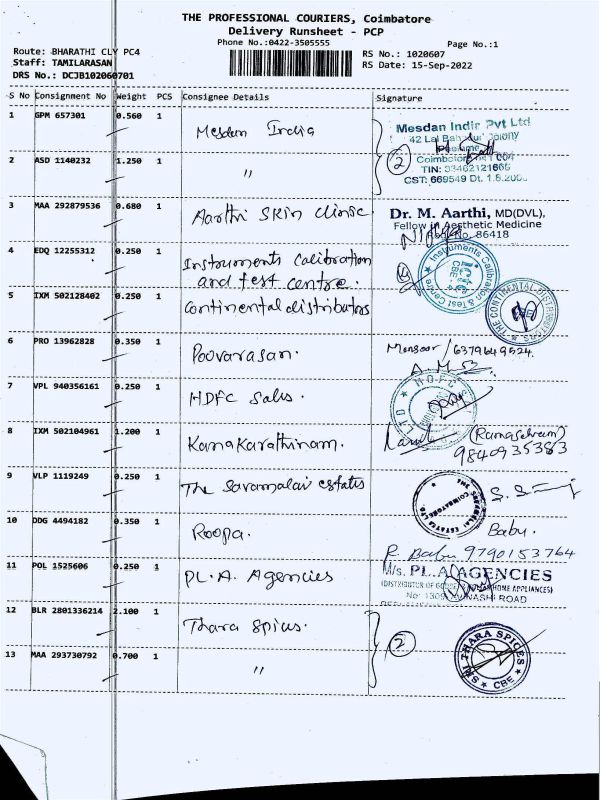 THE PROFESSIONAL COURIERS, Coimbatore
Delivery Runsheet - PCP
Phone No.:0422-3505555
Page No.:1
Route: BHARATHI CLY PC4
RS No.: 1020607
Staff: TAMILARASAN
RS Date: 15-Sep-2022
DRS No.: DCJB102060701
S No Consignment No Weight PCS Consignee Details Signature
1 GPM 657301 0.560 1 Mesdan India
Mesdan India Pvt Ltd
42 Lal Bahadur Colony
Peelamedu
Coimbatore
TIN: 33462121666
CST: 669549 Dt. 1.8.200
2 ASD 1140232 1.250 1 "
2
3 MAA 292879536 0.680 1 Aarthi Skin clinic
Dr. M. Aarthi, MD(DVL),
Fellow in Aesthetic Medicine
Reg. No. 86418
4 EDQ 12255312 0.250 1 Instruments calibration
and test centre.
Instruments Calibration & Test Centre
CBE
5 IXM 502128402 0.250 1 Continental distributors
THE CONTINENTAL DISTRIBUTORS
6 PRO 13962828 0.350 1 Poovarasan.
Mansoor / 6379649524.
7 VPL 940356161 0.250 1 HDFC Sales.
HDFC
LTD
8 IXM 502104961 1.200 1 Kanakarathinam.
(Ramaselvam)
9840935383
9 VLP 1119249 0.250 1 The Savamalai estates
10 DDG 4494182 0.350 1 Roopa.
Babu.
R. Babu 9790153764
11 POL 1525606 0.250 1 PL.A. Agencies
M/s. PL.A. AGENCIES
HOME APPLIANCES)
12 BLR 2801336214 2.100 1 Thara Spices.
2
13 MAA 293730792 0.700 1 "
SRI THARA SPICES
CBE